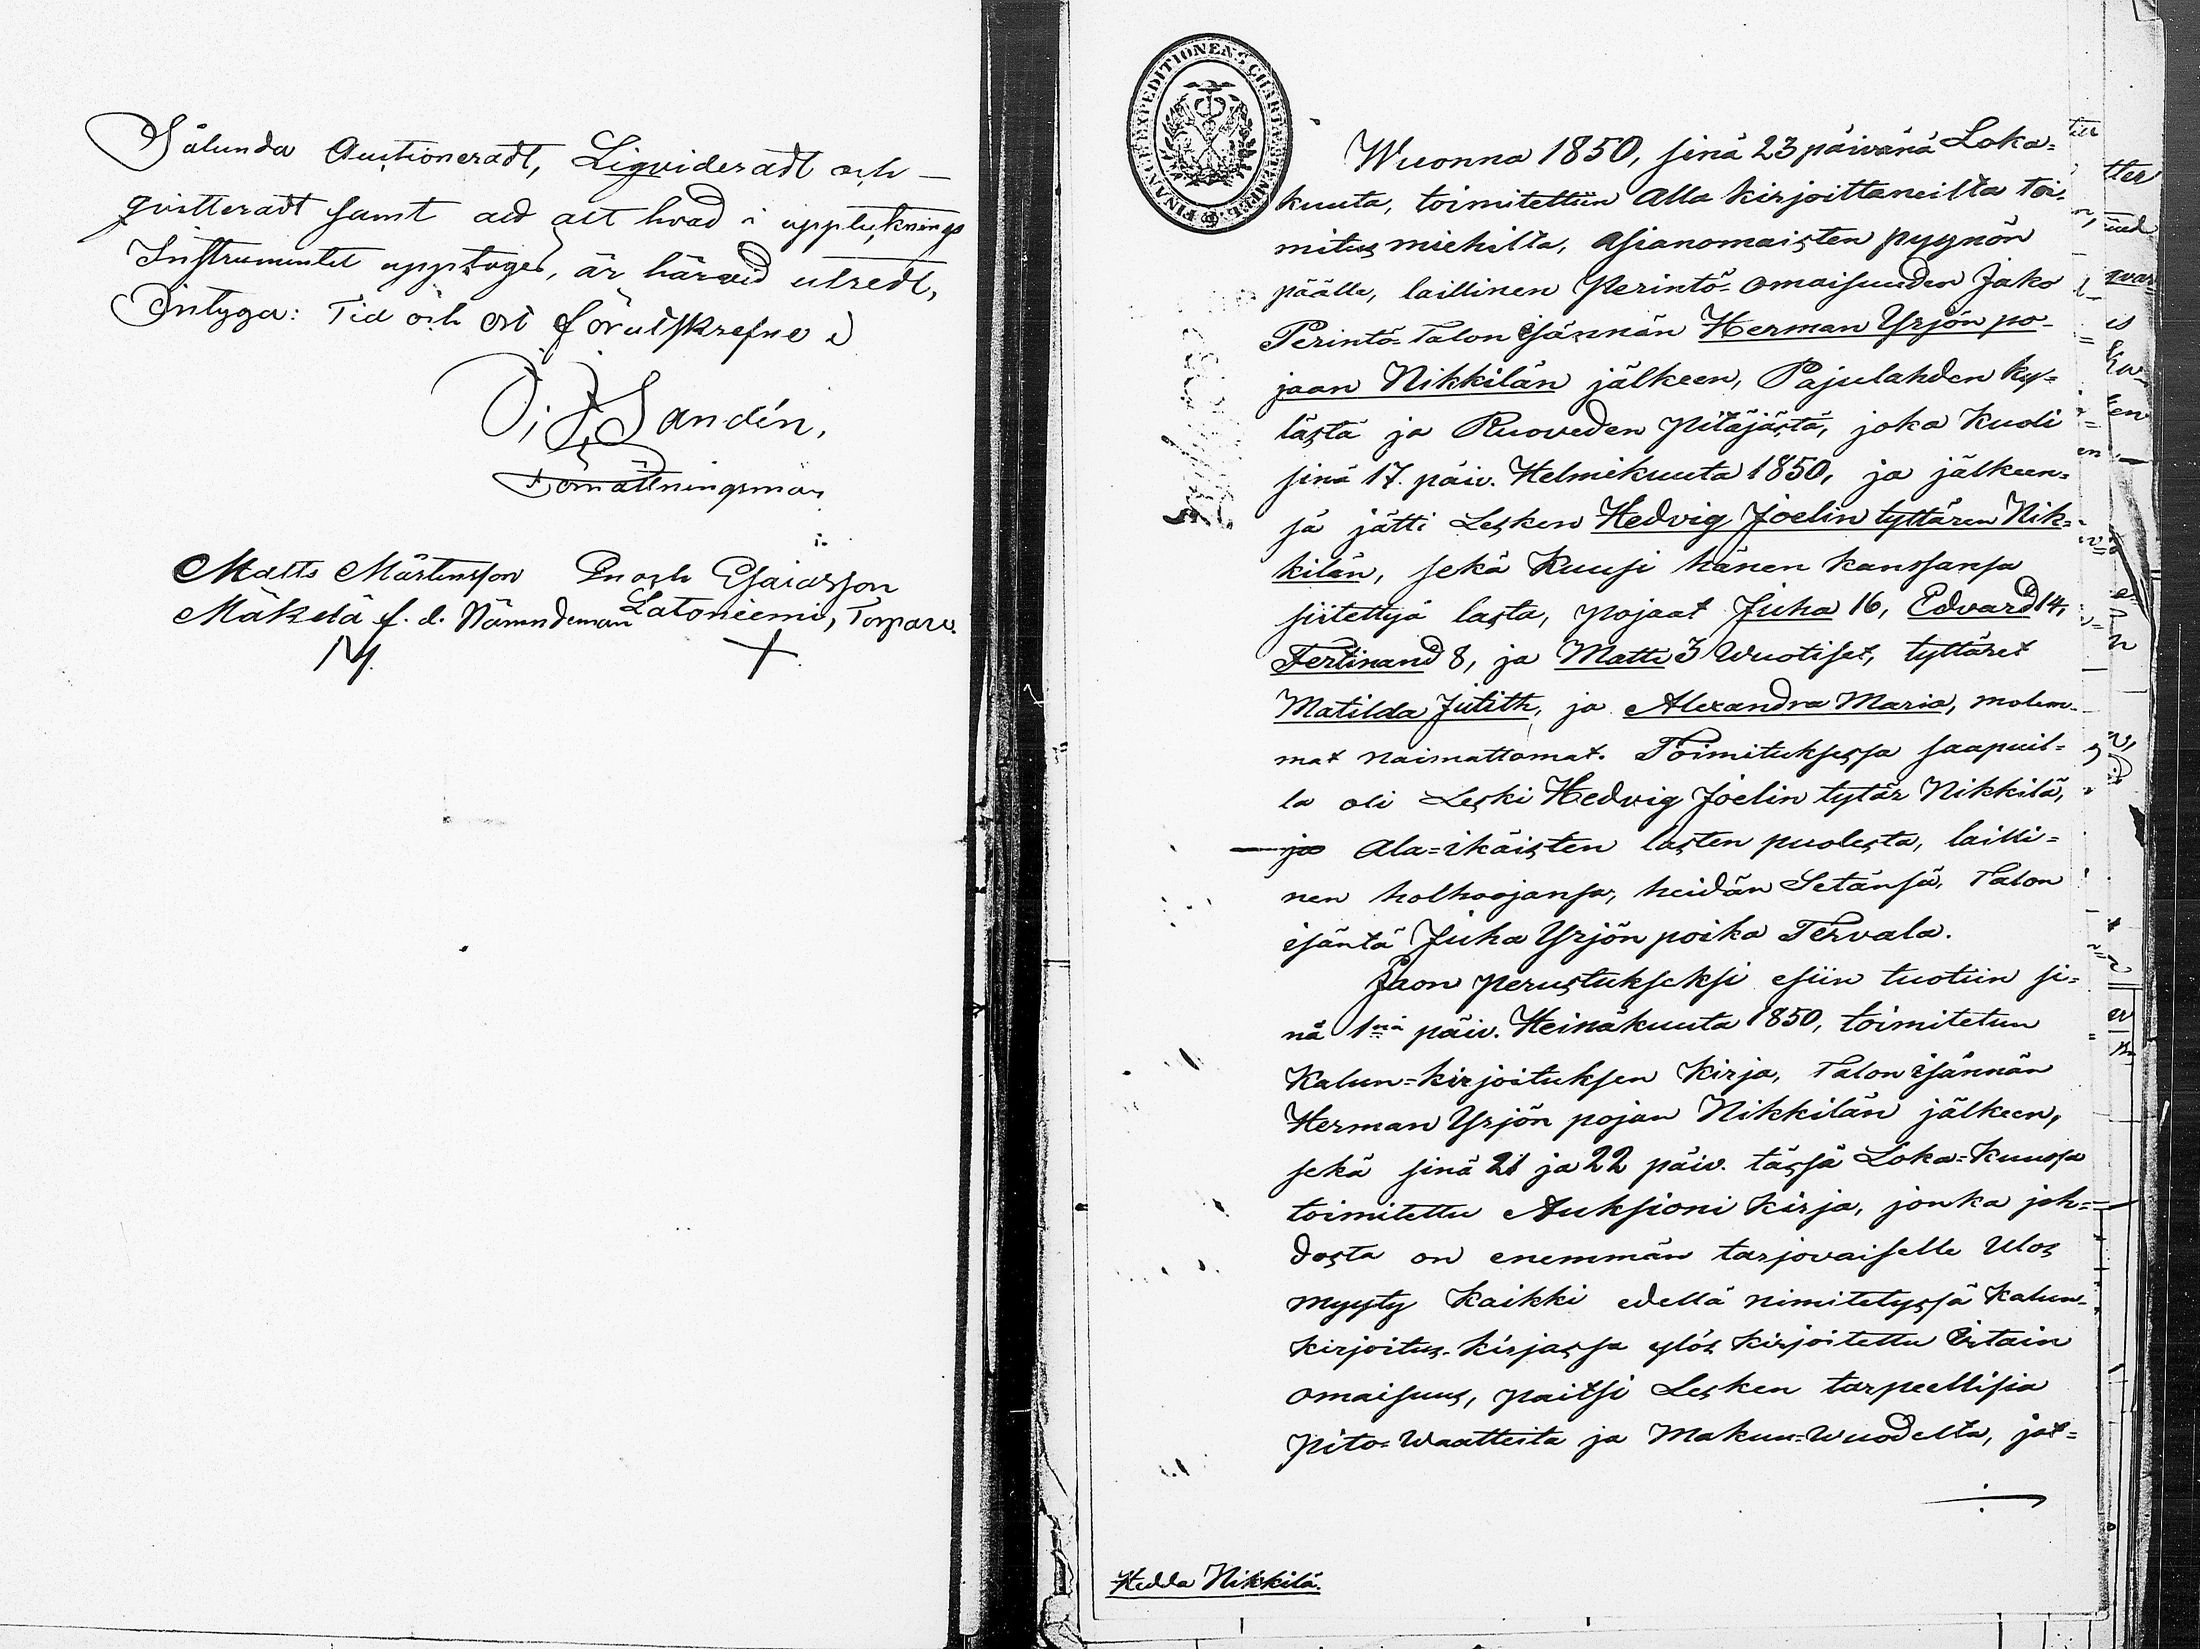 Sålunda Auctioneradt, Ligvideradt och
qvitteradt samt att alt hvad i upplysnings
Instrumentet upptages, är härvid utredt,
Intyga: Tid och ort förutskrefne
Sandén,
Förrättningsman
Matts Mårtensson Enoch Esaiasson
Mäkelä f. d. Nämndeman Latoniemi, Torpare.
FINANCE EXPEDITIONENS CHARTÆ STEMPEL
Wuonna 1850, sinä 23 päivänä Loka=
kuuta, toimitettiin Alla kirjoittaneilta toi-
mitus miehiltä, Asianomaisten pyynön
päälle, laillinen Perintö-omaisuuden Jako
Perintö-Talon isännän Herman Yrjön po-
jaan Nikkilän jälkeen, Pajulahden ky=
lästä ja Ruoveden Pitäjästä, joka kuoli
sinä 17. päiv. Helmikuuta 1850, ja jälkeen-
sä jätti Lesken Hedvig Joelin tyttären Nik=
kilän, sekä Kuusi hänen kanssansa
siitettyä lasta, pojaat Juha 16, Edvard 14,
Fertinand 8, ja Matti 3 Wuotiset, tyttäret
Matilda Jutith, ja Alexandra Maria, molem-
mat naimattomat. Toimituksessa saapuil=
la oli Leski Hedvig Joelin tytär Nikkilä,
ja Ala=ikäisten lasten puolesta, lailli=
nen holhoojansa, heidän Setänsä, Talon
isäntä Juha Yrjön poika Tervala.
Jaon perustukseksi esiin tuotiin si=
nä 1nä päiv. Heinäkuuta 1850, toimitetun
Kalun=kirjoituksen Kirja, Talon isännän
Herman Yrjön pojan Nikkilän jälkeen,
sekä sinä 21 ja 22 päiv. tässä Loka=Kuussa
toimitettu Auksioni Kirja, jonka joh=
dosta on enemmän tarjovaiselle Ulos
myyty Kaikki edellä nimitetyssä Kalun-
kirjoitus-kirjassa ylös kirjoitettu Irtain
omaisuus, paitsi Lesken tarpeellisia
Pito=Waatteita ja Makuu=Wuodetta, jot=
Hedda Nikkilä.